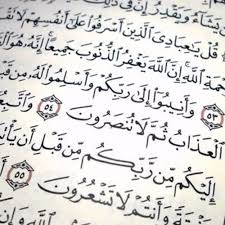 شَآءُ وَيَقْدِرُ إِنَّ فِى
۞ قُلْ يَٰعِبَادِىَ ٱلَّذِينَ أَسْرَفُوا۟ عَلَىٰٓ أَنفُسِهِمْ لَا
مَةِ ٱللَّهِ إِنَّ ٱللَّهَ يَغْفِرُ ٱلذُّنُوبَ جَمِيعًا إِنَّهُۥ هُوَ ٱلْ
وَأَنِيبُوٓا۟ إِلَىٰ رَبِّكُمْ وَأَسْلِمُوا۟ لَهُۥ مِن قَبْلِ
ٱلْعَذَابُ ثُمَّ لَا تُنصَرُونَ ٥٤ وَٱتَّبِعُوٓا۟
إِلَيْكُم مِّن رَّبِّكُم مِّن قَبْلِ أَن يَأْ
وَأَنتُمْ لَا تَشْعُرُونَ ٥٥